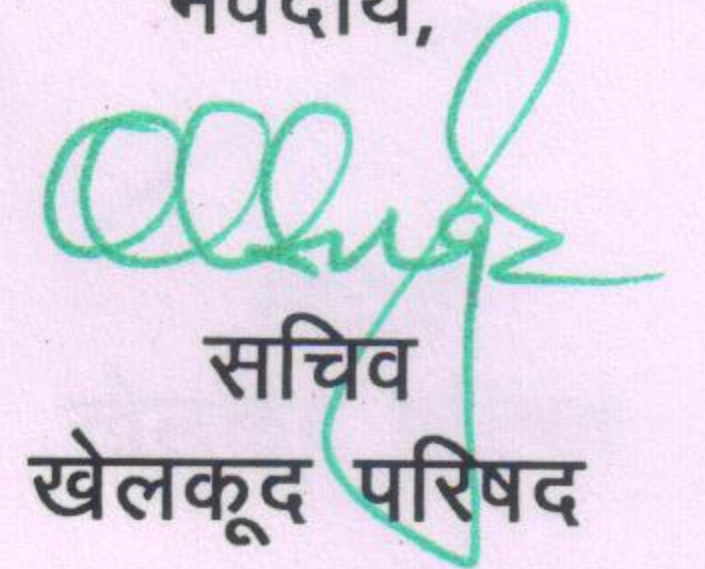 भवदीय,
सचिव
खेलकूद परिषद